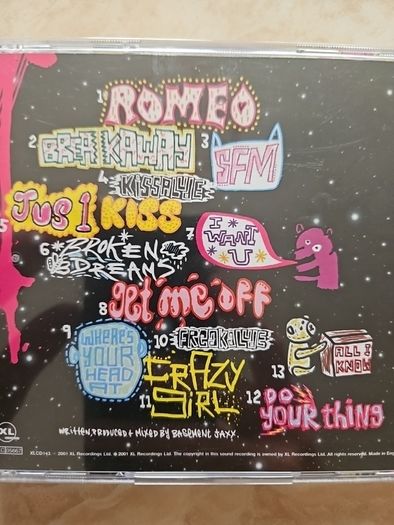 1 ROMEO
2 BREAKAWAY
3 SFM
4 KISSALUDE
5 JUS 1 KISS
6 BROKEN DREAMS
7 I WANT U
8 get me off
9 WHERE'S YOUR HEAD AT
10 FREAKALUDE
11 CRAZY GIRL
12 DO YOUR thing
13 ALL I KNOW
written, produced + mixed by Basement Jaxx.
XL
XLCD143 ℗ 2001 XL Recordings Ltd. © 2001 XL Recordings Ltd. The copyright in this sound recording is owned by XL Recordings Ltd. All rights reserved. Made in Eng